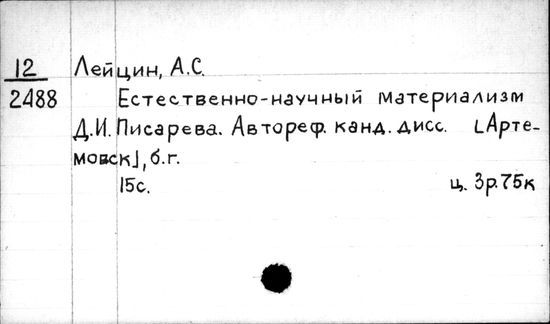 12 Лейцин, А.С.
2488 Естественно-научный материализм
Д.И. Писарева. Автореф. канд. дисс. [Арте-
мовск], б.г.
15с. ц. 3р.75к